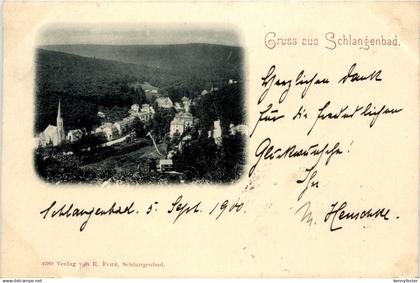 Gruss aus Schlangenbad.
Herzlichen Dank
für die freundlichen
Glückwünsche!
Ihr
M. Henschke.
Schlangenbad, 5. Sept. 1900.
4389 Verlag von R. Fritz, Schlangenbad.